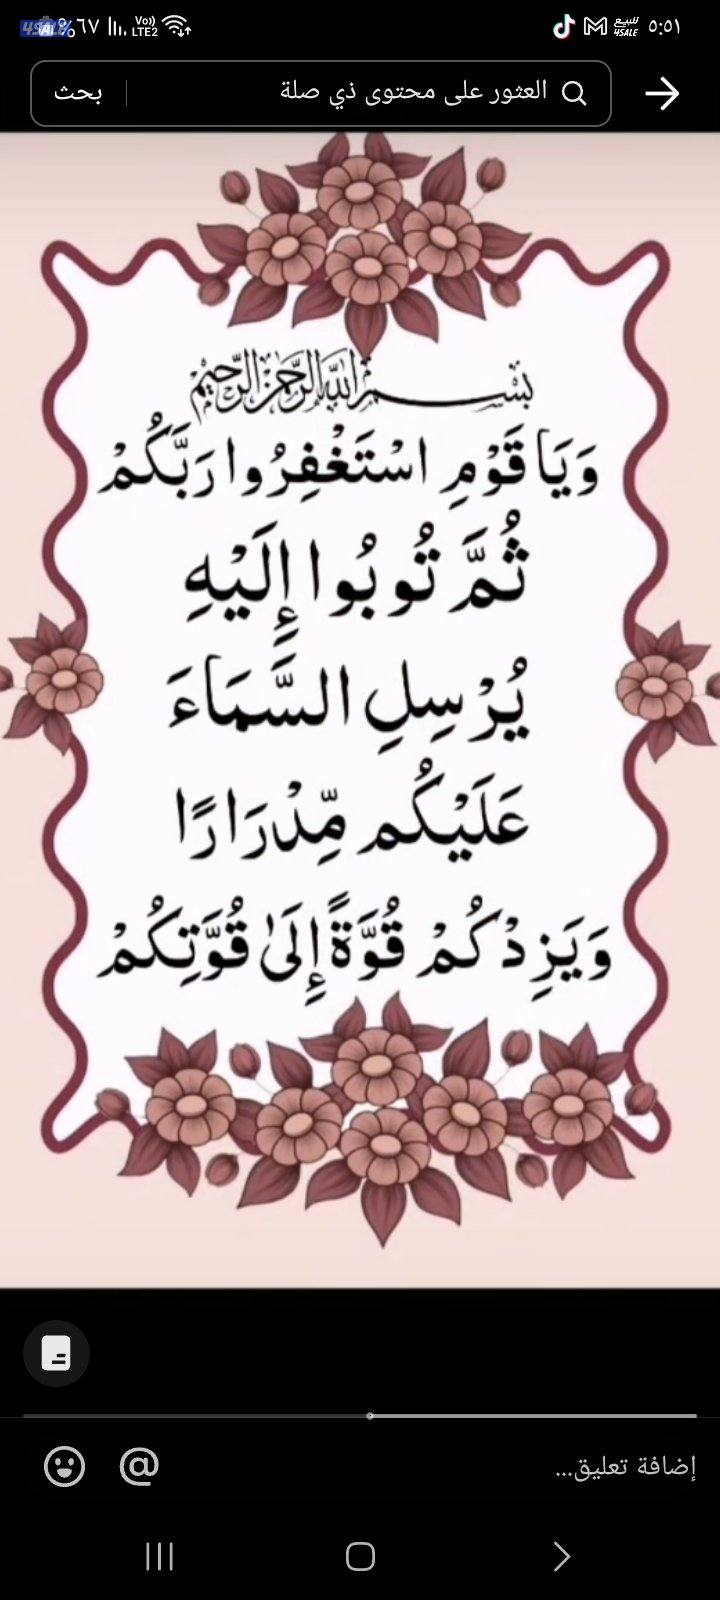 ٥:٥١ للبيع 4SALE Vo)) LTE2 ٦٧%
العثور على محتوى ذي صلة بحث
بسم الله الرحمن الرحيم
وَيَا قَوْمِ اسْتَغْفِرُوا رَبَّكُمْ
ثُمَّ تُوبُوا إِلَيْهِ
يُرْسِلِ السَّمَاءَ
عَلَيْكُم مِّدْرَارًا
وَيَزِدْكُمْ قُوَّةً إِلَىٰ قُوَّتِكُمْ
إضافة تعليق...